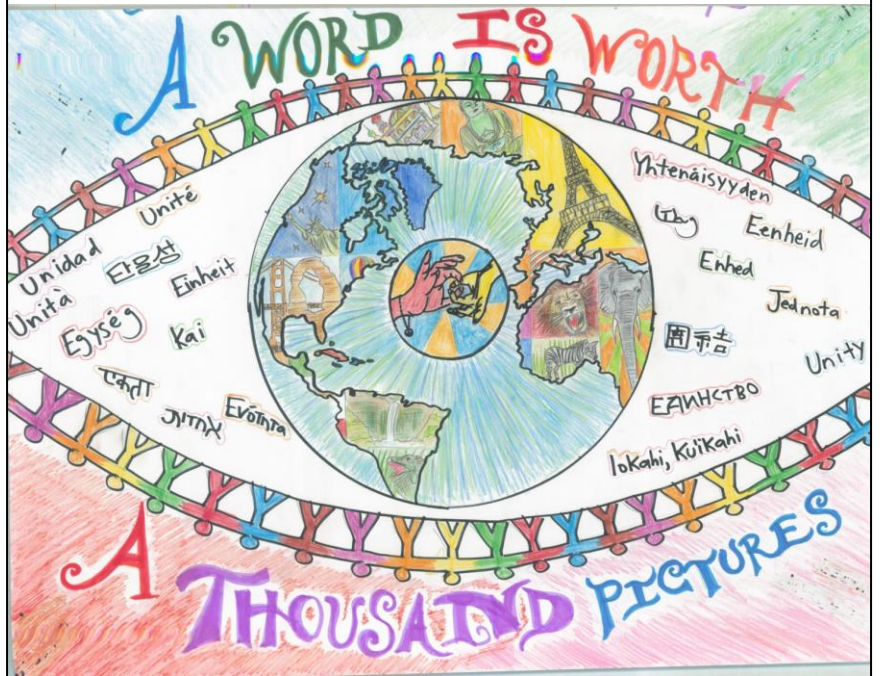 A WORD IS WORTH
Unité
Unidad
Einheit
Unità
Egység
Kai
एकता
Ενότητα
Yhtenäisyyden
Eenheid
Enhed
Jednota
Unity
ЕДИНСТВО
lokahi, Kuikahi
A THOUSAND PICTURES